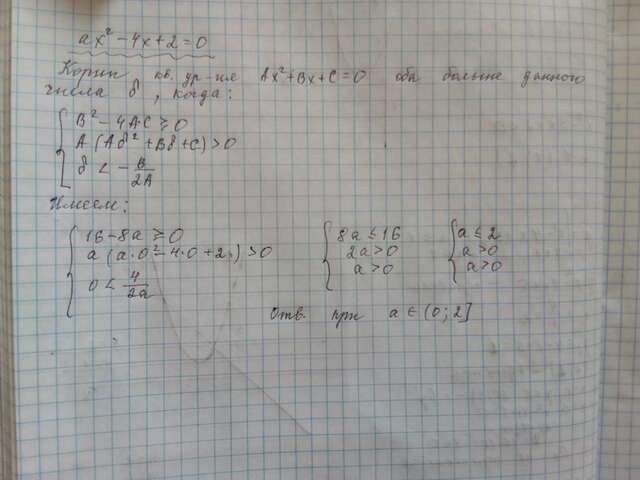 ax² - 4x + 2 = 0
Корни кв. ур-ия Ax² + Bx + C = 0 оба больше данного
числа δ, когда:
B² - 4AC ≥ 0
A (Aδ² + Bδ + C) > 0
δ < - B/2A
Имеем:
16 - 8a ≥ 0
a (a·0² - 4·0 + 2) > 0
0 < 4/2a
8a ≤ 16
2a > 0
a > 0
a ≤ 2
a > 0
a > 0
Отв. при a ∈ (0; 2]